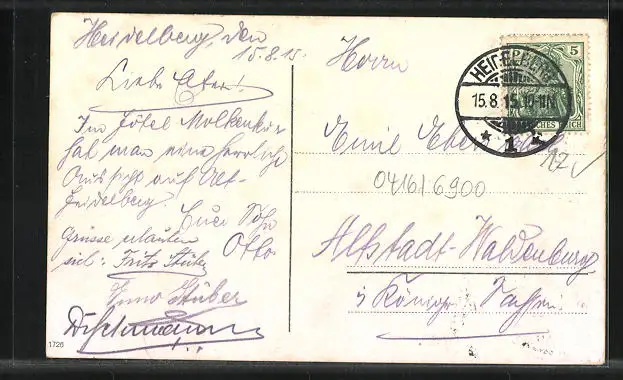 Heidelberg, den
15.8.15.
Liebe Eltern!
Im Hôtel Molkenkur
hat man eine herrliche
Aussicht auf Alt-
Heidelberg.
Euer Sohn
Otto.
Grüsse erlauben
sich: Fritz Stüber
Stüber
1726
Herrn
Emil
04161 6900
12
Altstadt-Waldenburg
i/ Königr. Sachsen
5
HEIDELBERG
15.8.15.10-11N
* 1 *
DEUTSCHES REICH